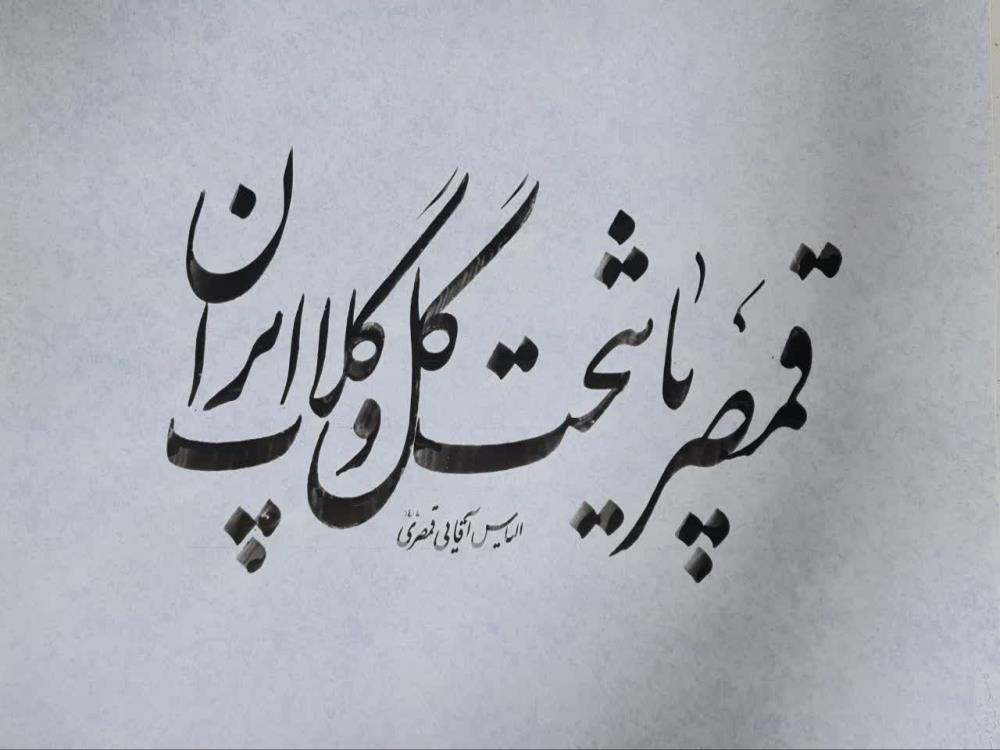 قمصر پایتخت گل و گلاب ایران
الیاس آقایی قمصری